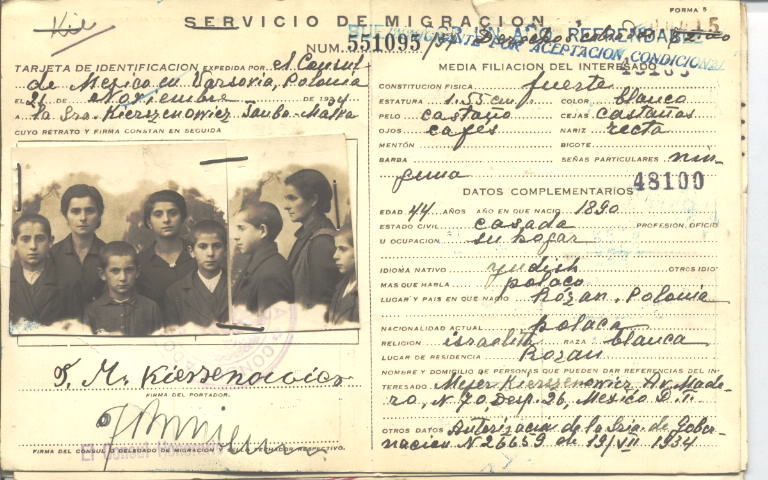 FORMA 5
SERVICIO DE MIGRACION
NUM. 551095
TARJETA DE IDENTIFICACION EXPEDIDA POR el Consul
de Mexico en Varsovia, Polonia
DE Noviembre DE 1934
A la Sra. Kierszenowicz Tauba-Malka
CUYO RETRATO Y FIRMA CONSTAN EN SEGUIDA
T. M. Kierszenowicz
FIRMA DEL PORTADOR.
El Consul
FIRMA DEL CONSUL O DELEGADO DE MIGRACION Y SELLO FECHADOR RESPECTIVO.
POR ACEPTACION CONDICIONAL
MEDIA FILIACION DEL INTERESADO
CONSTITUCION FISICA fuerte
ESTATURA 1.55 cm COLOR blanco
PELO castaño CEJAS castañas
OJOS cafés NARIZ recta
MENTÓN BIGOTE
BARBA SEÑAS PARTICULARES nin-
guna
DATOS COMPLEMENTARIOS
48100
EDAD 44 AÑOS AÑO EN QUE NACIO 1890
ESTADO CIVIL casada PROFESION, OFICIO
U OCUPACION su hogar
IDIOMA NATIVO yudish OTROS IDIO-
MAS QUE HABLA polaco
LUGAR Y PAIS EN QUE NACIO Rózan. Polonia
NACIONALIDAD ACTUAL polaca
RELIGION israelita RAZA blanca
LUGAR DE RESIDENCIA Rozan
NOMBRE Y DOMICILIO DE PERSONAS QUE PUEDEN DAR REFERENCIAS DEL IN-
TERESADO Mejer Kierszenowicz Av. Made-
ro, N. 70, Desp. 26, Mexico D. F.
OTROS DATOS Autorización de la Sria. de Gober-
nacion N 26659 de 19/VII 1934